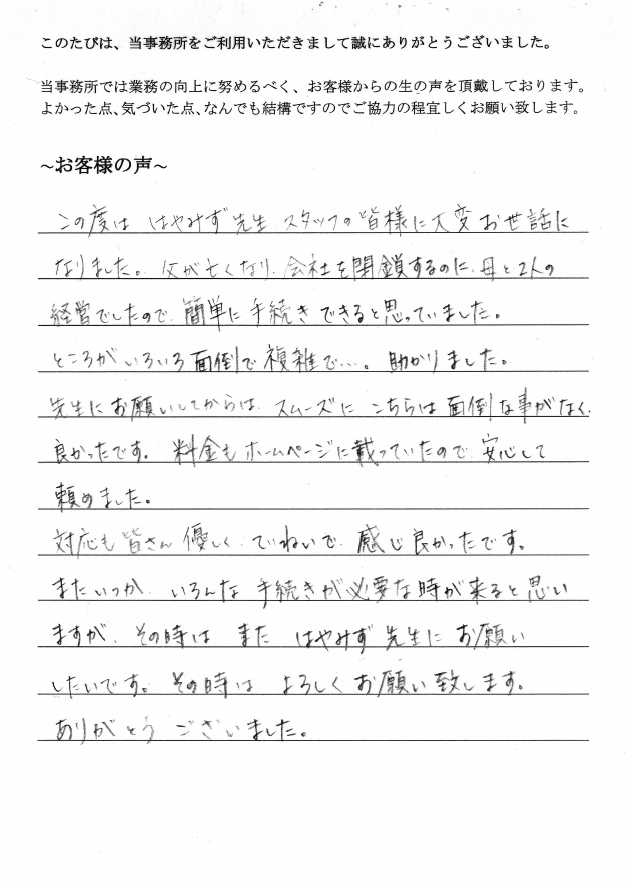 このたびは、当事務所をご利用いただきまして誠にありがとうございました。
当事務所では業務の向上に努めるべく、お客様からの生の声を頂戴しております。
よかった点、気づいた点、なんでも結構ですのでご協力の程宜しくお願い致します。
~お客様の声~
この度は はやみず先生 スタッフの皆様に大変お世話に
なりました。父が亡くなり、会社を閉鎖するのに、母と2人の
経営でしたので、簡単に手続きできると思っていました。
ところがいろいろ面倒で複雑で…。助かりました。
先生にお願いしてからは、スムーズに こちらは面倒な事がなく、
良かったです。料金もホームページに載っていたので、安心して
頼めました。
対応も皆さん優しく、ていねいで、感じ良かったです。
またいつか、いろんな手続きが必要な時が来ると思い
ますが、その時は また はやみず先生に お願い
したいです。その時は よろしくお願い致します。
ありがとう ございました。